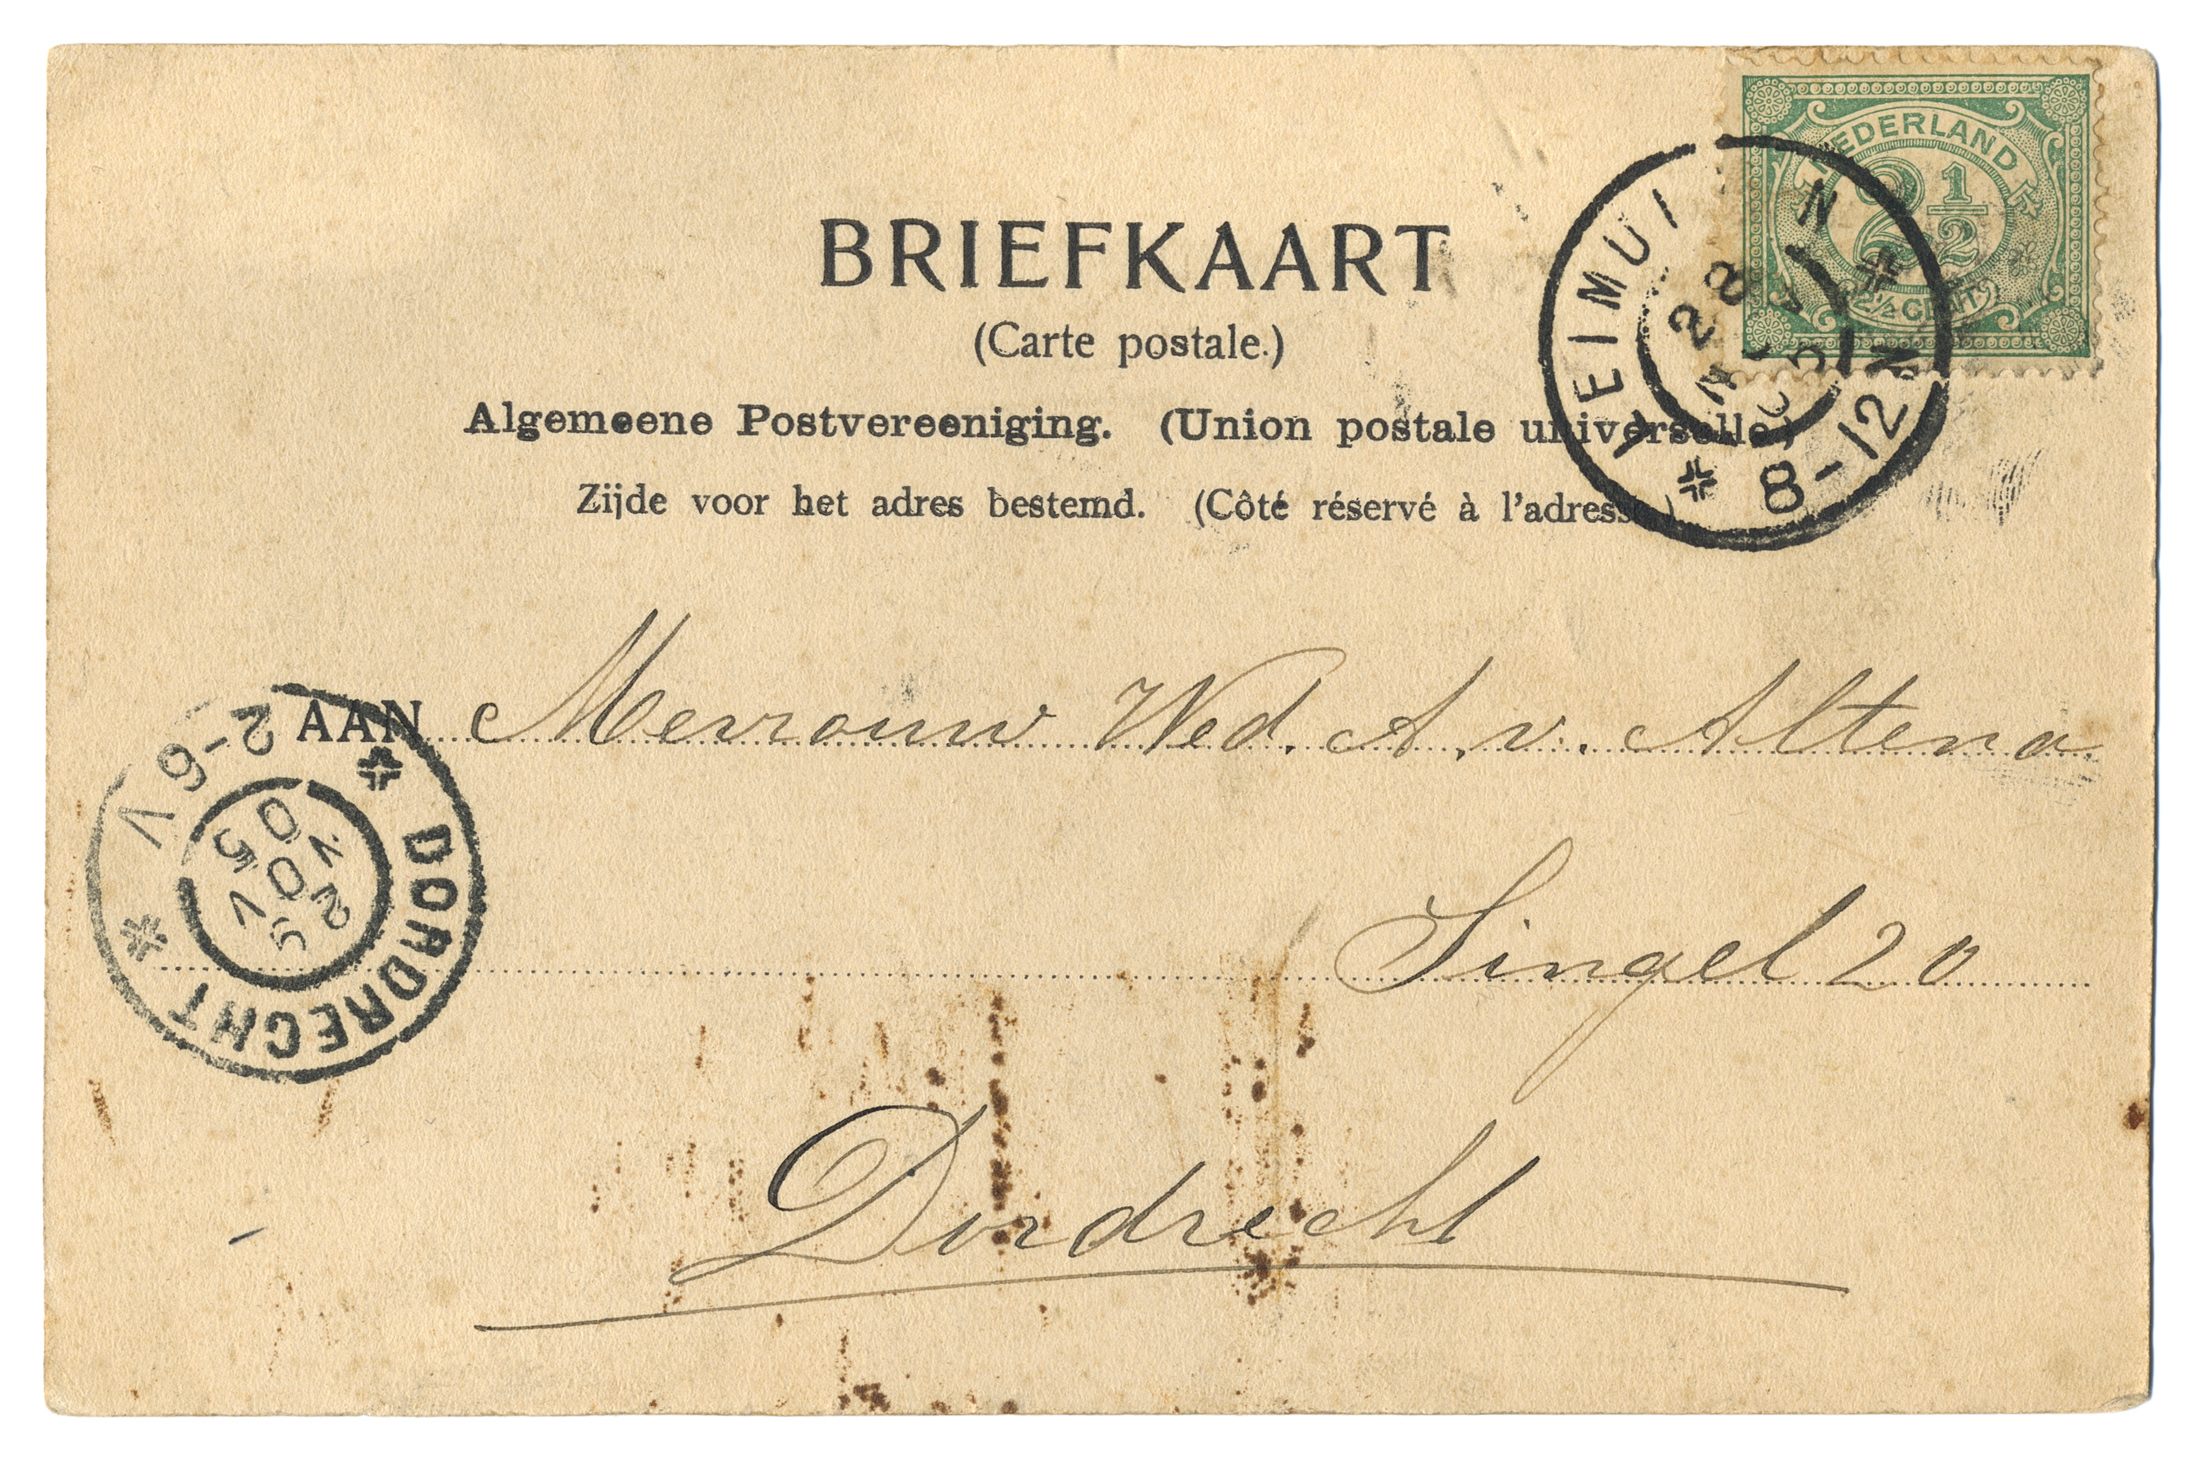 NEDERLAND
2 1/2
2½ CENT
BRIEFKAART
(Carte postale.)
Algemeene Postvereeniging. (Union postale universelle)
Zijde voor het adres bestemd. (Côté réservé à l'adresse)
8-12 N
AAN Mevrouw Wed. A. v. Altena
Singel 20
Dordrecht
DORDRECHT
2-6V